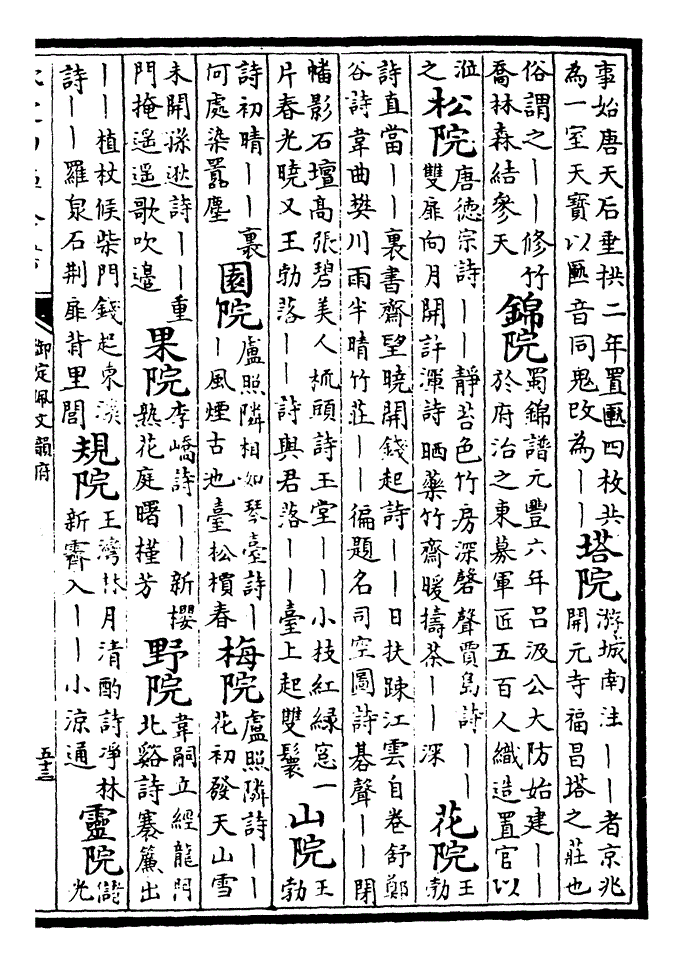 事始唐天后垂拱二年置匭四枚共
為一室天寶以匭音同鬼改為丨丨
塔院
游城南注丨丨者京兆
開元寺福昌塔之莊也
俗謂之丨丨修竹
喬林森結參天
錦院
蜀錦譜元豐六年呂汲公大防始建丨丨
於府治之東募軍匠五百人織造置官以
涖
之
松院
唐德宗詩丨丨靜苔色竹房深磬聲賈島詩丨丨
雙扉向月開許渾詩晒藥竹齋暖擣茶丨丨深
花院
王
勃
詩直當丨丨裏書齋望曉開錢起詩丨丨日扶疎江雲自卷舒鄭
谷詩韋曲樊川雨半晴竹莊丨丨徧題名司空圖詩碁聲丨丨閉
幡影石壇高張碧美人梳頭詩玉堂丨丨小枝紅綠窓一
片春光曉又王勃落丨丨詩與君落丨丨臺上起雙鬟
山院
王
勃
詩初晴丨丨裏
何處染囂塵
園院
盧照隣相如琴臺詩丨
丨風煙古池臺松檟春
梅院
盧照隣詩丨丨
花初發天山雪
未開孫逖詩丨丨重
門掩遥遥歌吹邉
果院
李嶠詩丨丨新櫻
熟花庭曙槿芳
野院
韋嗣立經龍門
北谿詩褰簾出
丨丨植杖候柴門錢起東溪
詩丨丨羅泉石荆扉背里閭
規院
王灣林月清酌詩淨林
新霽入丨丨小涼通
靈院
儲
光
御定佩文韻府
五十三